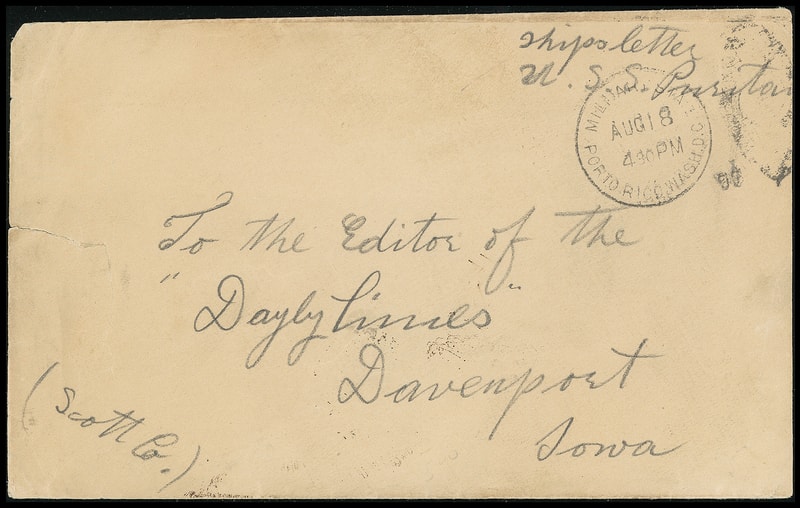 Ships letter
U. S. S. Purita
MILITARY STA. 1
AUG 18
4 30 PM
PORTO RICO, WASH. D.C.
To the Editor of the
"Dayly Times"
Davenport
Iowa
(Scott Co.)